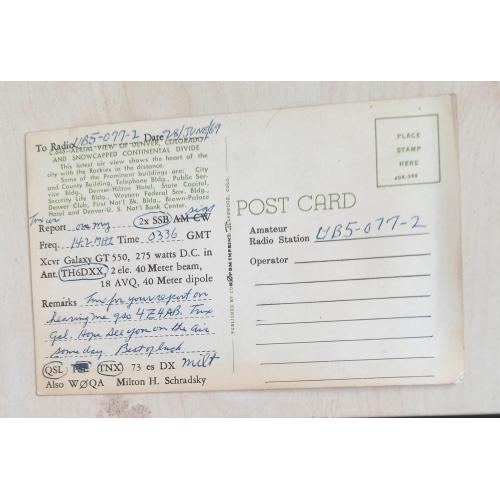 To Radio UB5-077-2 Date 28/JUNE/69
AERIAL VIEW OF DENVER, COLORADO
AND SNOWCAPPED CONTINENTAL DIVIDE
This latest air view shows the heart of the
city with the Rockies in the distance.
Some of the Prominent buildings are: City
and County Building, Telephone Bldg., Public Ser-
vice Bldg., Denver-Hilton Hotel, State Capitol,
Security Life Bldg., Western Federal Sav. Bldg.,
Denver Club, First Nat'l Bk. Bldg., Brown-Palace
Hotel and Denver-U. S. Nat'l Bank Center.
Tnx ur sigs
Report on my 2x SSB AM CW
Freq. 14.2 MHZ Time 0336 GMT
Xcvr Galaxy GT 550, 275 watts D.C. in
Ant. TH6DXX, 2 ele. 40 Meter beam,
18 AVQ, 40 Meter dipole
Remarks Tnx for your report on
hearing me qso 4Z4AB. Tnx
Gal. Hope see you on the air
some day. Best of luck
QSL TNX 73 es DX Milt
Also WØQA Milton H. Schradsky
PLACE
STAMP
HERE
POST CARD
Amateur
Radio Station UB5-077-2
Operator